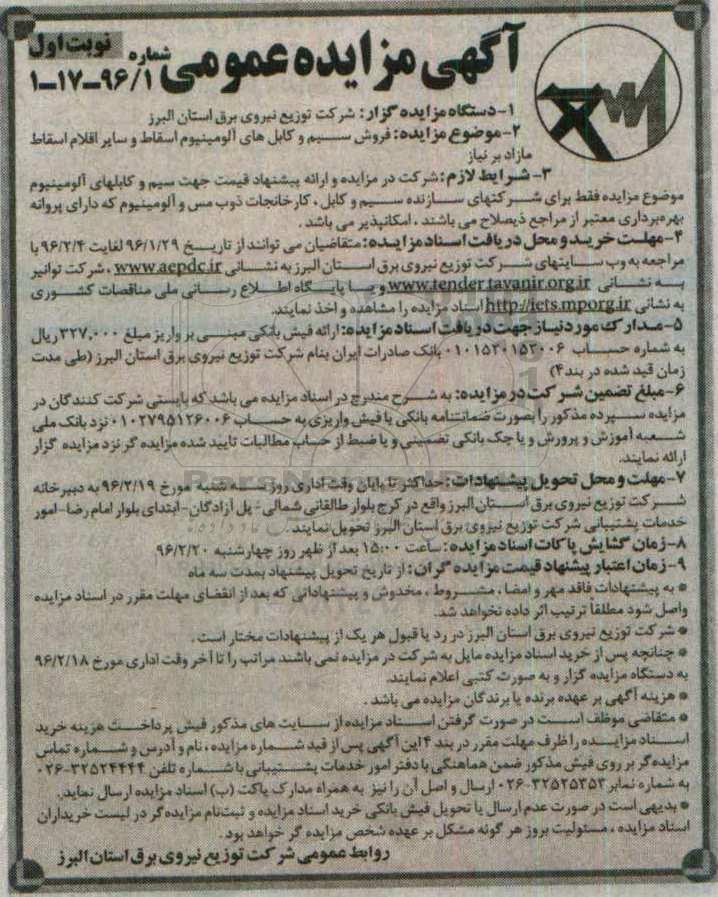 نوبت اول
آگهی مزایده عمومی شماره ۱-۱۷-۹۶/۱
۱- دستگاه مزایده گزار: شرکت توزیع نیروی برق استان البرز
۲- موضوع مزایده: فروش سیم و کابل های آلومینیوم اسقاط و سایر اقلام اسقاط
مازاد بر نیاز
۳- شرایط لازم: شرکت در مزایده و ارائه پیشنهاد قیمت جهت سیم و کابلهای آلومینیوم
موضوع مزایده فقط برای شرکتهای سازنده سیم و کابل، کارخانجات ذوب مس و آلومینیوم که دارای پروانه
بهره‌برداری معتبر از مراجع ذیصلاح می باشند، امکانپذیر می باشد.
۴- مهلت خرید و محل دریافت اسناد مزایده: متقاضیان می توانند از تاریخ ۹۶/۱/۲۹ لغایت ۹۶/۲/۴ با
مراجعه به وب سایتهای شرکت توزیع نیروی برق استان البرز به نشانی www.aepdc.ir، شرکت توانیر
به نشانی www.tender.tavanir.org.ir و یا پایگاه اطلاع رسانی ملی مناقصات کشوری
به نشانی http://iets.mporg.ir اسناد مزایده را مشاهده و اخذ نمایند.
۵- مدارک مورد نیاز جهت دریافت اسناد مزایده: ارائه فیش بانکی مبنی بر واریز مبلغ ۳۲۷,۰۰۰ ریال
به شماره حساب ۰۱۰۱۵۳۰۱۵۳۰۰۶ بانک صادرات ایران بنام شرکت توزیع نیروی برق استان البرز (طی مدت
زمان قید شده در بند ۴)
۶- مبلغ تضمین شرکت در مزایده: به شرح مندرج در اسناد مزایده می باشد که بایستی شرکت کنندگان در
مزایده سپرده مذکور را بصورت ضمانتنامه بانکی یا فیش واریزی به حساب ۰۱۰۲۷۹۵۱۲۶۰۰۶ نزد بانک ملی
شعبه آموزش و پرورش و یا چک بانکی تضمینی و یا ضبط از حساب مطالبات تایید شده مزایده گر نزد مزایده گزار
ارائه نمایند.
۷- مهلت و محل تحویل پیشنهادات: حداکثر تا پایان وقت اداری روز سه شنبه مورخ ۹۶/۲/۱۹ به دبیرخانه
شرکت توزیع نیروی برق استان البرز واقع در کرج بلوار طالقانی شمالی - پل آزادگان - ابتدای بلوار امام رضا - امور
خدمات پشتیبانی شرکت توزیع نیروی برق استان البرز تحویل نمایند.
۸- زمان گشایش پاکات اسناد مزایده: ساعت ۱۵:۰۰ بعد از ظهر روز چهارشنبه ۹۶/۲/۲۰
۹- زمان اعتبار پیشنهاد قیمت مزایده گران: از تاریخ تحویل پیشنهاد بمدت سه ماه
* به پیشنهادات فاقد مهر و امضا، مشروط، مخدوش و پیشنهاداتی که بعد از انقضای مهلت مقرر در اسناد مزایده
واصل شود مطلقاً ترتیب اثر داده نخواهد شد.
* شرکت توزیع نیروی برق استان البرز در رد یا قبول هر یک از پیشنهادات مختار است.
* چنانچه پس از خرید اسناد مزایده مایل به شرکت در مزایده نمی باشند مراتب را تا آخر وقت اداری مورخ ۹۶/۲/۱۸
به دستگاه مزایده گزار و به صورت کتبی اعلام نمایند.
* هزینه آگهی بر عهده برنده یا برندگان مزایده می باشد.
* متقاضی موظف است در صورت گرفتن اسناد مزایده از سایت های مذکور فیش پرداخت هزینه خرید
اسناد مزایده را ظرف مهلت مقرر در بند ۴ این آگهی پس از قید شماره مزایده، نام و آدرس و شماره تماس
مزایده‌گر بر روی فیش مذکور ضمن هماهنگی با دفتر امور خدمات پشتیبانی با شماره تلفن ۳۲۵۲۴۴۴۴-۰۲۶
به شماره نمابر ۳۲۵۲۵۳۵۳-۰۲۶ ارسال و اصل آن را نیز به همراه مدارک پاکت (ب) اسناد مزایده ارسال نماید.
* بدیهی است در صورت عدم ارسال یا تحویل فیش بانکی خرید اسناد مزایده و ثبت‌نام مزایده‌گر در لیست خریداران
اسناد مزایده، مسئولیت بروز هر گونه مشکل بر عهده شخص مزایده گر خواهد بود.
روابط عمومی شرکت توزیع نیروی برق استان البرز